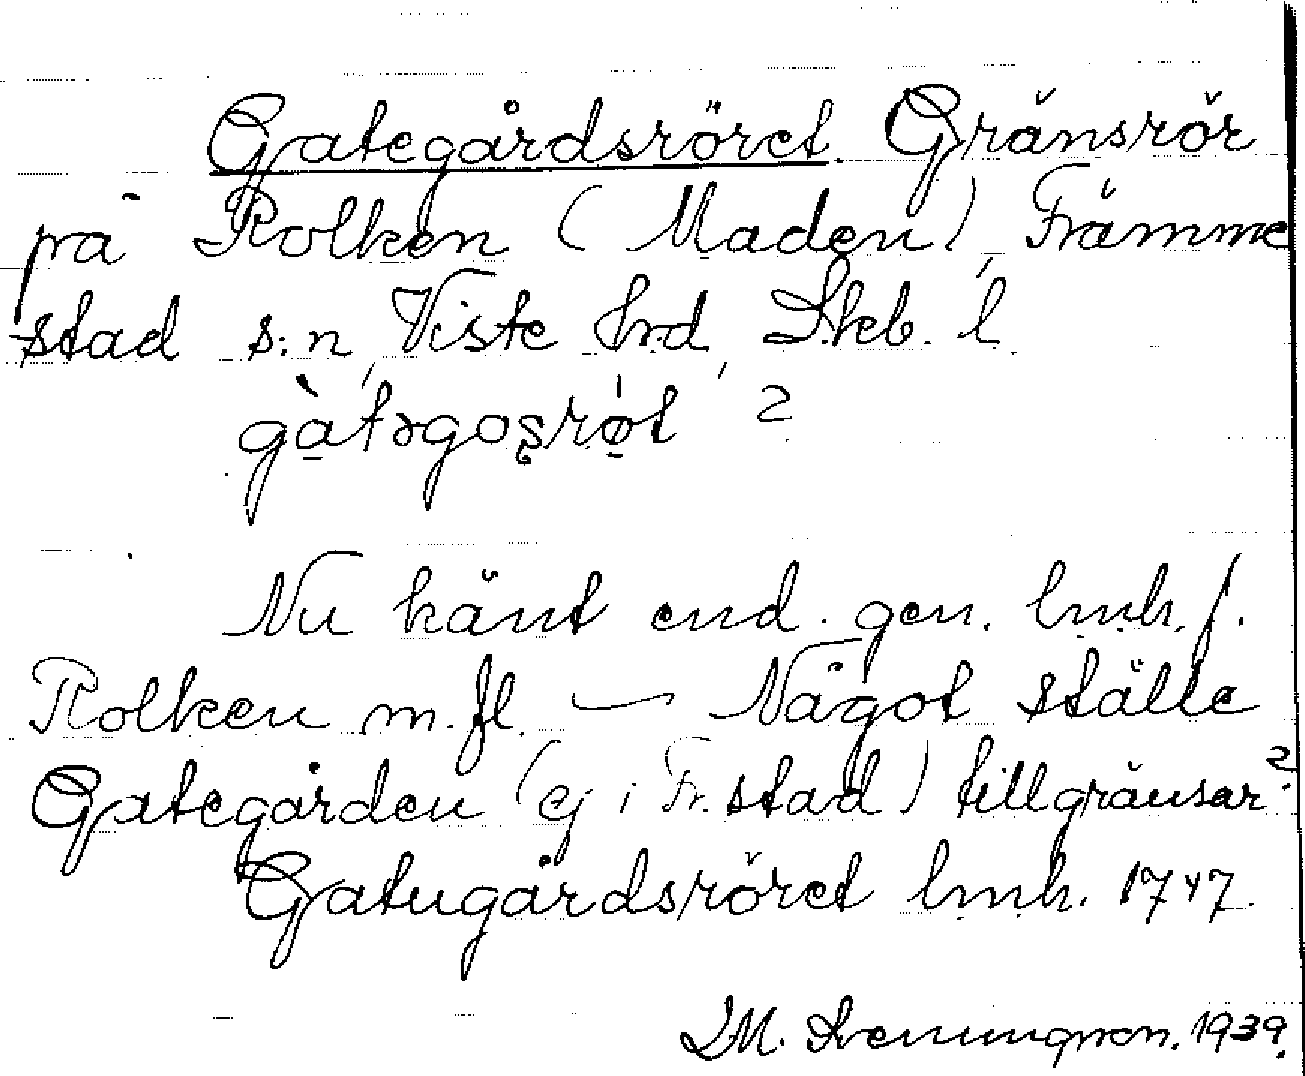 Gategårdsröret. Gränsrör
på Rolken (Maden), Främme
stad s:n, Viste hrd, Skb. l.
gàtəgoʂrøt 2
Nu känt end. gen. lmh. f.
Rolken m.fl. — Något ställe
Gategården (ej i Fr.stad) tillgränsar?
Gatugårdsröret lmh. 1747.
Svenungsson. 1939.